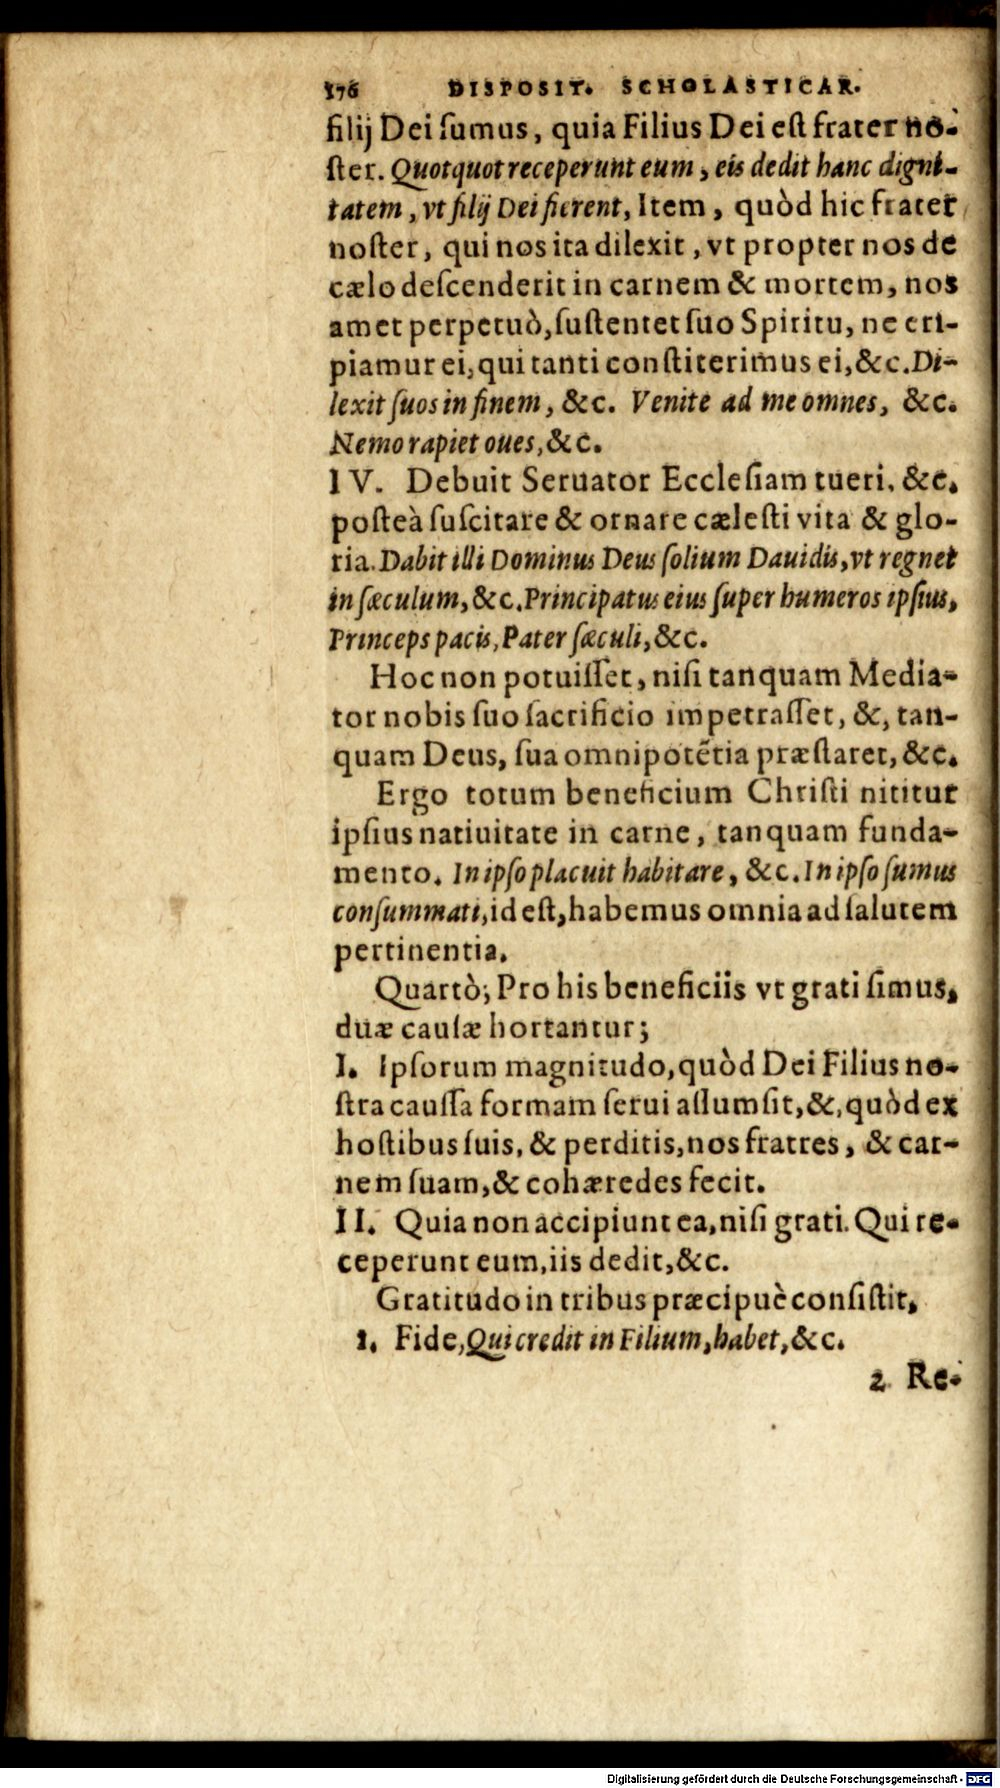 176 DISPOSIT. SCHOLASTICAR.
filij Dei ſumus, quia Filius Dei eſt frater no-
ſter. Quotquot receperunt eum, eis dedit hanc digni-
tatem, vt filij Dei fierent, Item, quòd hic frater
noſter, qui nos ita dilexit, vt propter nos de
cælo deſcenderit in carnem & mortem, nos
amet perpetuò, ſuſtentet ſuo Spiritu, ne eri-
piamur ei, qui tanti conſtiterimus ei, &c. Di-
lexit ſuos in finem, &c. Venite ad me omnes, &c.
Nemo rapiet oues, &c.
IV. Debuit Seruator Eccleſiam tueri, &c.
poſteà ſuſcitare & ornare cæleſti vita & glo-
ria. Dabit illi Dominus Deus ſolium Dauidis, vt regnet
in ſæculum, &c. Principatus eius ſuper humeros ipſius,
Princeps pacis, Pater ſæculi, &c.
Hoc non potuiſſet, niſi tanquam Media-
tor nobis ſuo ſacrificio impetraſſet, &, tan-
quam Deus, ſua omnipotẽtia præſtaret, &c.
Ergo totum beneficium Chriſti nititur
ipſius natiuitate in carne, tanquam funda-
mento. In ipſo placuit habitare, &c. In ipſo ſumus
conſummati, id eſt, habemus omnia ad ſalutem
pertinentia.
Quartò; Pro his beneficiis vt grati ſimus,
duæ cauſæ hortantur;
I. Ipſorum magnitudo, quòd Dei Filius no-
ſtra cauſſa formam ſerui aſſumſit, &, quòd ex
hoſtibus ſuis, & perditis, nos fratres, & car-
nem ſuam, & cohæredes fecit.
II. Quia non accipiunt ea, niſi grati. Qui re-
ceperunt eum, iis dedit, &c.
Gratitudo in tribus præcipuè conſiſtit,
1. Fide, Qui credit in Filium, habet, &c.
2. Re-
Digitalisierung gefördert durch die Deutsche Forschungsgemeinschaft - DFG